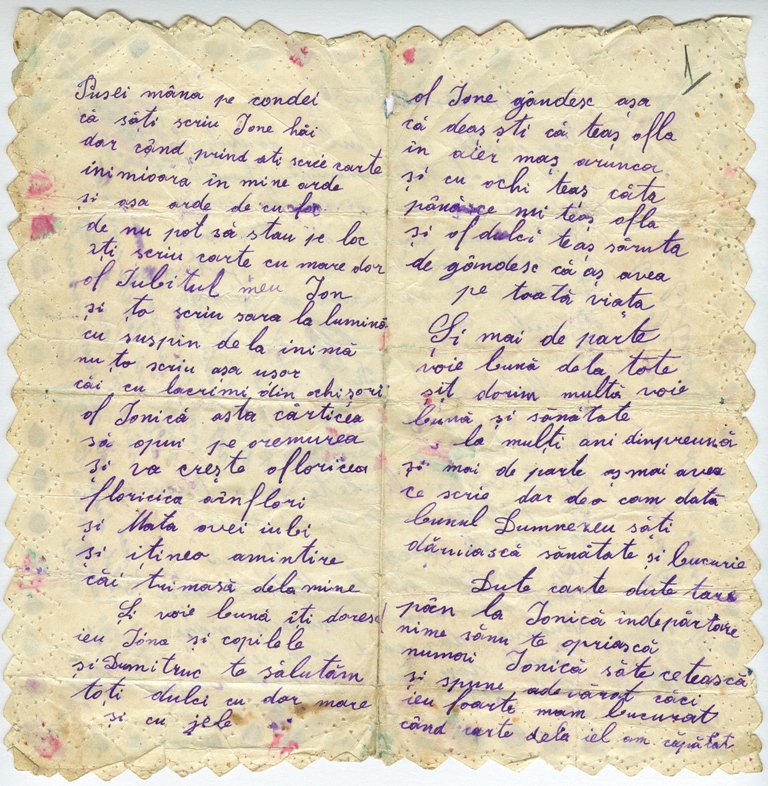 Pusei mâna pe condei
ca săți scriu Ione hăi
dar când prind ati scrie carte
inimioara în mine arde
și asa arde de cu foc
de nu pot să stau pe loc
ști scriu carte cu mare dor
of Iubitul meu Ion
și to scriu sara la lumină
cu suspin de la inimă
nu to scriu așa ușor
căi cu lacrimi din ochisori
of Ionică asta cărticea
să opui pe oremurea
și va crește ofloricea
floricica aînflori
și Mata ovei iubi
și ițineo amintire
căi trimasă dela mine
Și voie bună iți doresc
ieu Iona și copilele
și Dumitruc te sălutăm
toți dulci cu dor mare
și cu jele
1
of Ione gândesc așa
că deaș sti că teaș ofla
in aier maș arunca
și cu ochi teaș căta
până ce mi teaș ofla
și of dulci teaș săruta
de gândesc că aș avea
pe toată viața
Și mai de parte
voie bună dela tote
șit dorim multă voie
bună și sănătate
la mulți ani dinpreună
și mai de parte aș mai avea
ce scrie dar deo cam dată
bunul Dumnezeu săți
dăruiască sănătate și bucurie
Dute carte dute tare
păn la Ionică indepărtare
nime sănu te opriască
numai Ionică săte cetească
și spune adevărat căci
ieu foarte mam bucurat
când carte dela iel am căpătat